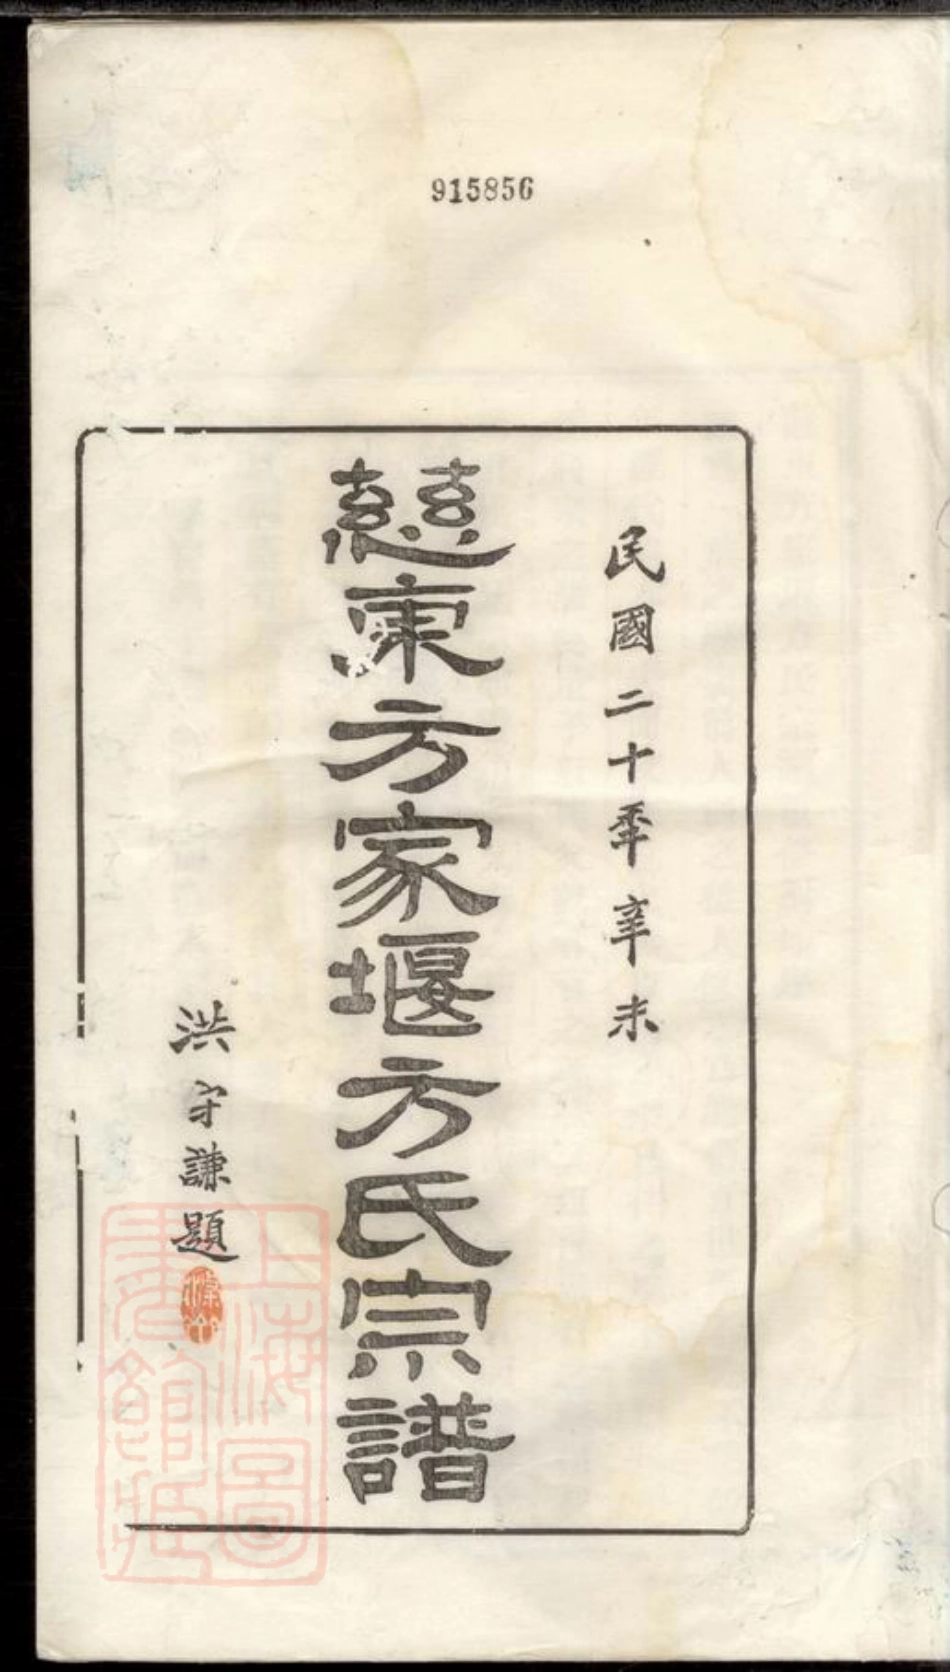 915856
民國二十季辛未
慈東方家堰方氏宗譜
洪守謙題
上海圖書館藏